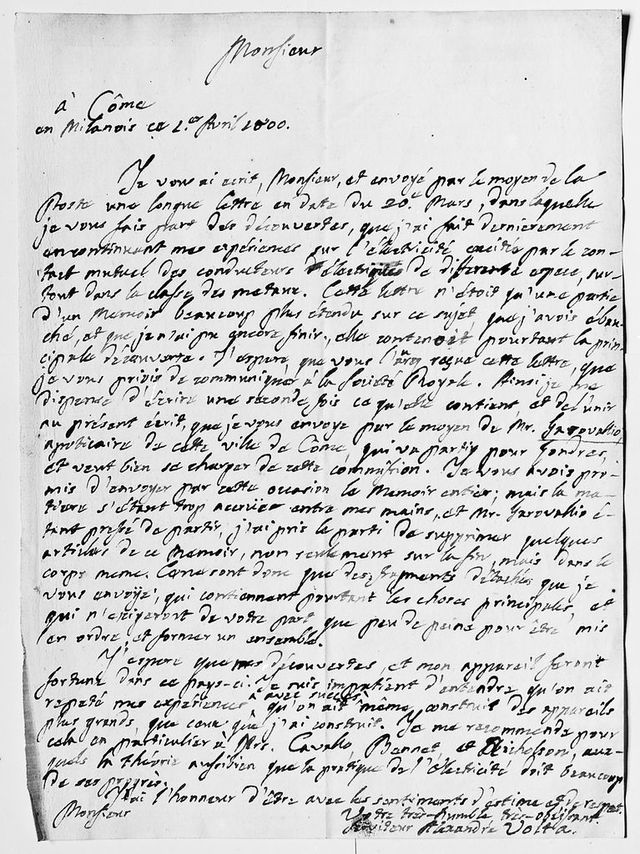 Monsieur
à Côme
en Milanois ce 1.er Avril 1800.
Je vous ai ecrit, Monsieur, et envoyé par le moyen de la
Poste une longue lettre en date du 20e. Mars, dans laquelle
je vous fais part des découvertes, que j'ai fait dernierement
en continuant mes expériences sur l'électricité excitée par le con-
tact mutuel des conducteurs de differente espece, sur-
tout dans la classe des metaux. Cette lettre n'étoit qu'une partie
d'un Memoir beaucoup plus étendu sur ce sujet que j'avois ébau-
ché, et que je n'ai pu encore finir: elle contenoit pourtant la prin-
cipale découverte. J'espere, que vous aurez reçue cette lettre, que
je vous priois de communiquer à la Societé Royale. Ainsi je me
dispense d'écrire une seconde fois ce qu'elle contient, et de l'unir
au présent écrit, que je vous envoye par le moyen de Mr. Garovaglio
apoticaire de cette ville de Côme, qui va partir pour Londres,
et veut bien se charger de cette commission. Je vous avois pro-
mis d'envoyer par cette occasion le Memoir entier; mais la ma-
tiere s'étant trop accruë entre mes mains, et Mr. Garovaglio é-
tant pressé de partir, j'ai pris le parti de supprimer quelques
articles de ce Memoir, non seulement sur la fin, mais dans le
corps meme. Ce ne sont donc que des fragments détachés que je
vous envoye, qui contiennent pourtant les choses principales, et
qui n'exigeront de votre part que peu de peine pour être mis
en ordre, et former un ensemble.
J'espere que mes découvertes, et mon appareil feront
fortune dans ce pays-ci. Je suis impatient d'entendre qu'on ait
repeté mes expériences avec succès, qu'on ait même construit des appareils
plus grands, que ceux que j'ai construit. Je me recommende pour
cela en particulier à Mrs. Cavallo, Bennet, et Nicholson, aux-
quels la théorie aussi bien que la pratique de l'électricité doit beaucoup
de ses progrès.
J'ai l'honneur d'être avec les sentiments d'estime et de respet.
Monsieur
Votre très-humble, très-obéissant
Serviteur Alexandre Volta.